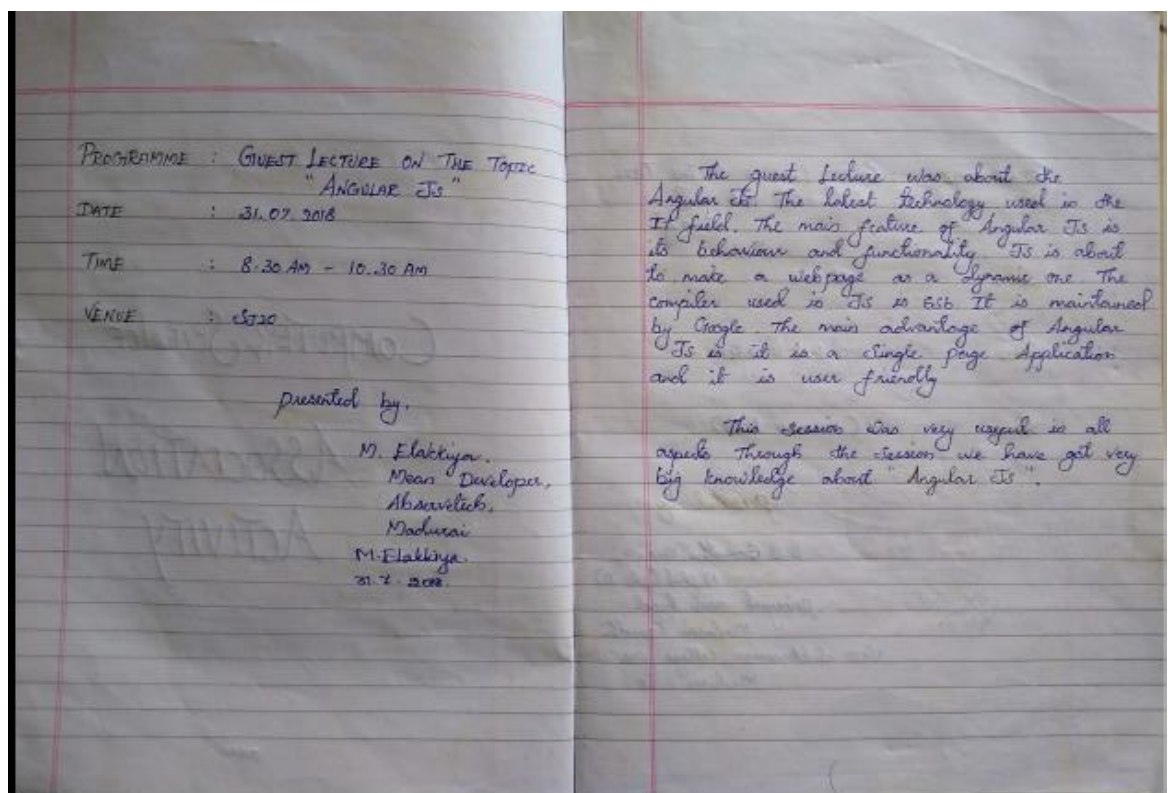 PROGRAMME : GUEST LECTURE ON THE TOPIC
"ANGULAR JS"
DATE : 31.07.2018
TIME : 8.30 AM - 10.30 AM
VENUE : SJ20
presented by,
M. Elakkiya.
Mean Developer,
Abservetech,
Madurai
M.Elakkiya.
31.7.2018.
The guest Lecture was about the
Angular JS. The latest technology used in the
IT field. The main feature of Angular JS is
its behaviour and functionality. JS is about
to make a webpage as a dynamic one The
compiler used in JS is It is maintained
by Google. The main advantage of Angular
JS is it is a Single page Application
and it is user friendly
This session was very useful in all
aspects Through the session we have got very
big knowledge about "Angular JS".
COMPUTER SCIENCE
ASSOCIATION
ACTIVITY